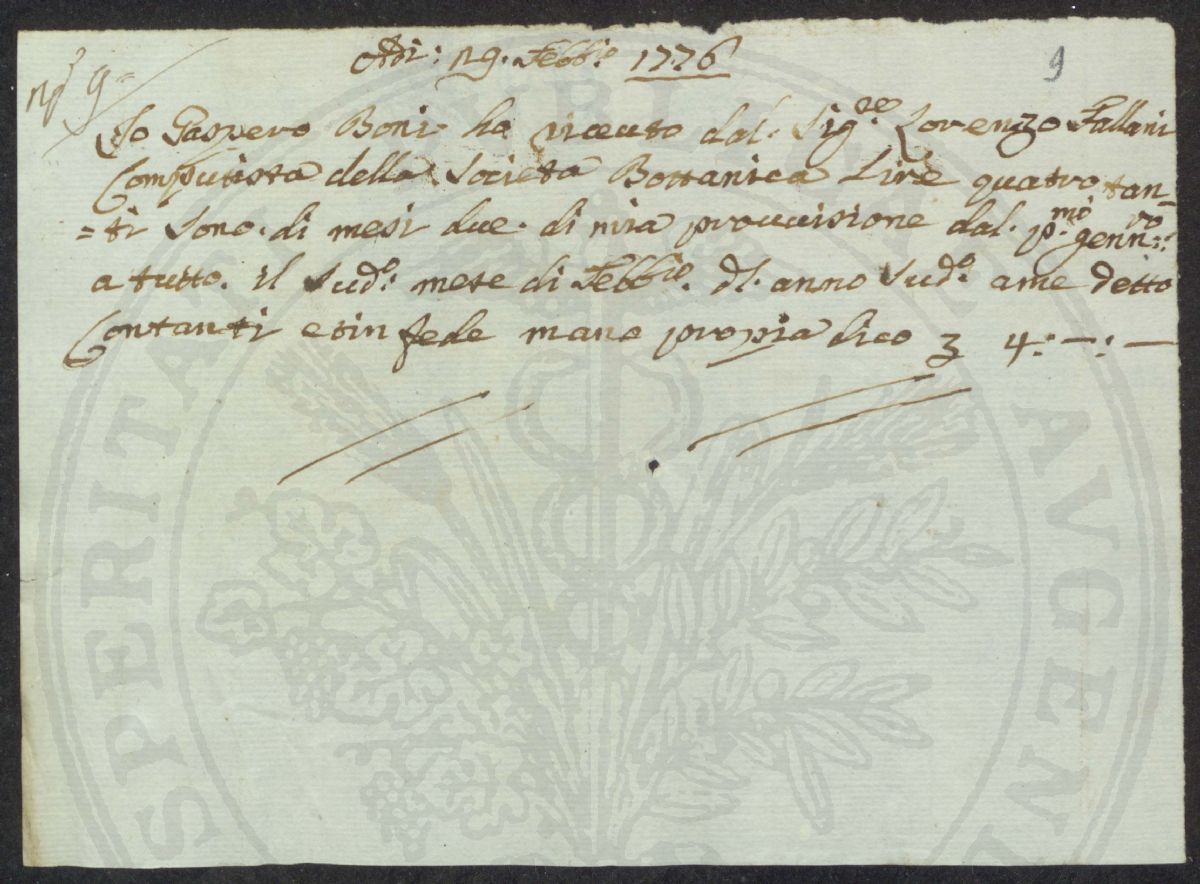 Adi: 29. Febb:o 1776
9
N.o 9=
Io Gaspero Boni ho riceuto dal. Sig:re Lorenzo Fallani
Computista della Società Bottanica Lire quatro tan=
=ti sono. di mesi due. di mia prouuisione dal. p:mo genn:ro
a tutto. il Sud:o mese di Febb:o. dl. anno Sud:o a me detto
Contanti e in fede mano propria dico 3 4:—:—
PUBLICAE
AUGEN
SPERITAT